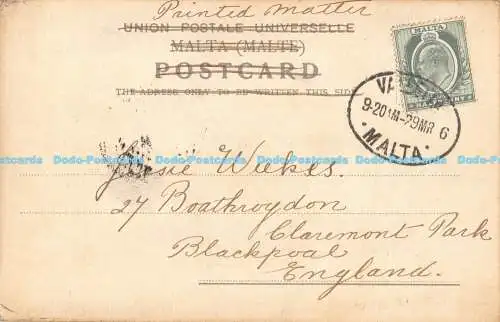 Printed Matter
UNION POSTALE UNIVERSELLE
MALTA (MALTE)
POSTCARD
THE ADDRESS ONLY TO BE WRITTEN THIS SIDE
MALTA
9-20AM-29MR 6
MALTA
Jessie Weekes.
Dodo-Postcards Dodo-Postcards Dodo-Postcards Dodo-Postcards Dodo-Postcards
27 Boathroydon
Claremont Park
Blackpool
England.